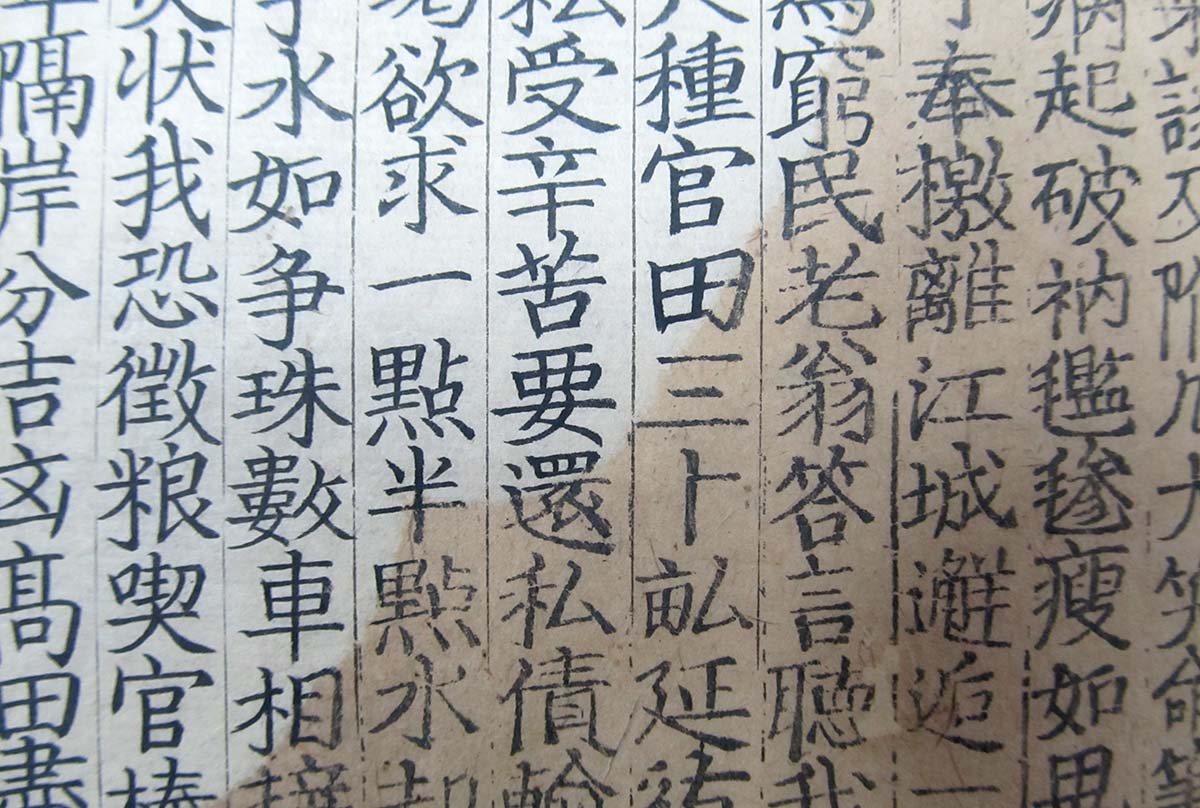 大笑
病起破衲㲯毿瘦如
奉檄離江城邂逅一
為窮民老翁答言聽我
種官田三十畆延
私受辛苦要還私債輸
欲求一點半點水却
水如争珠數車相接
状我恐徵粮喫官棒
隔岸分吉凶髙田盡